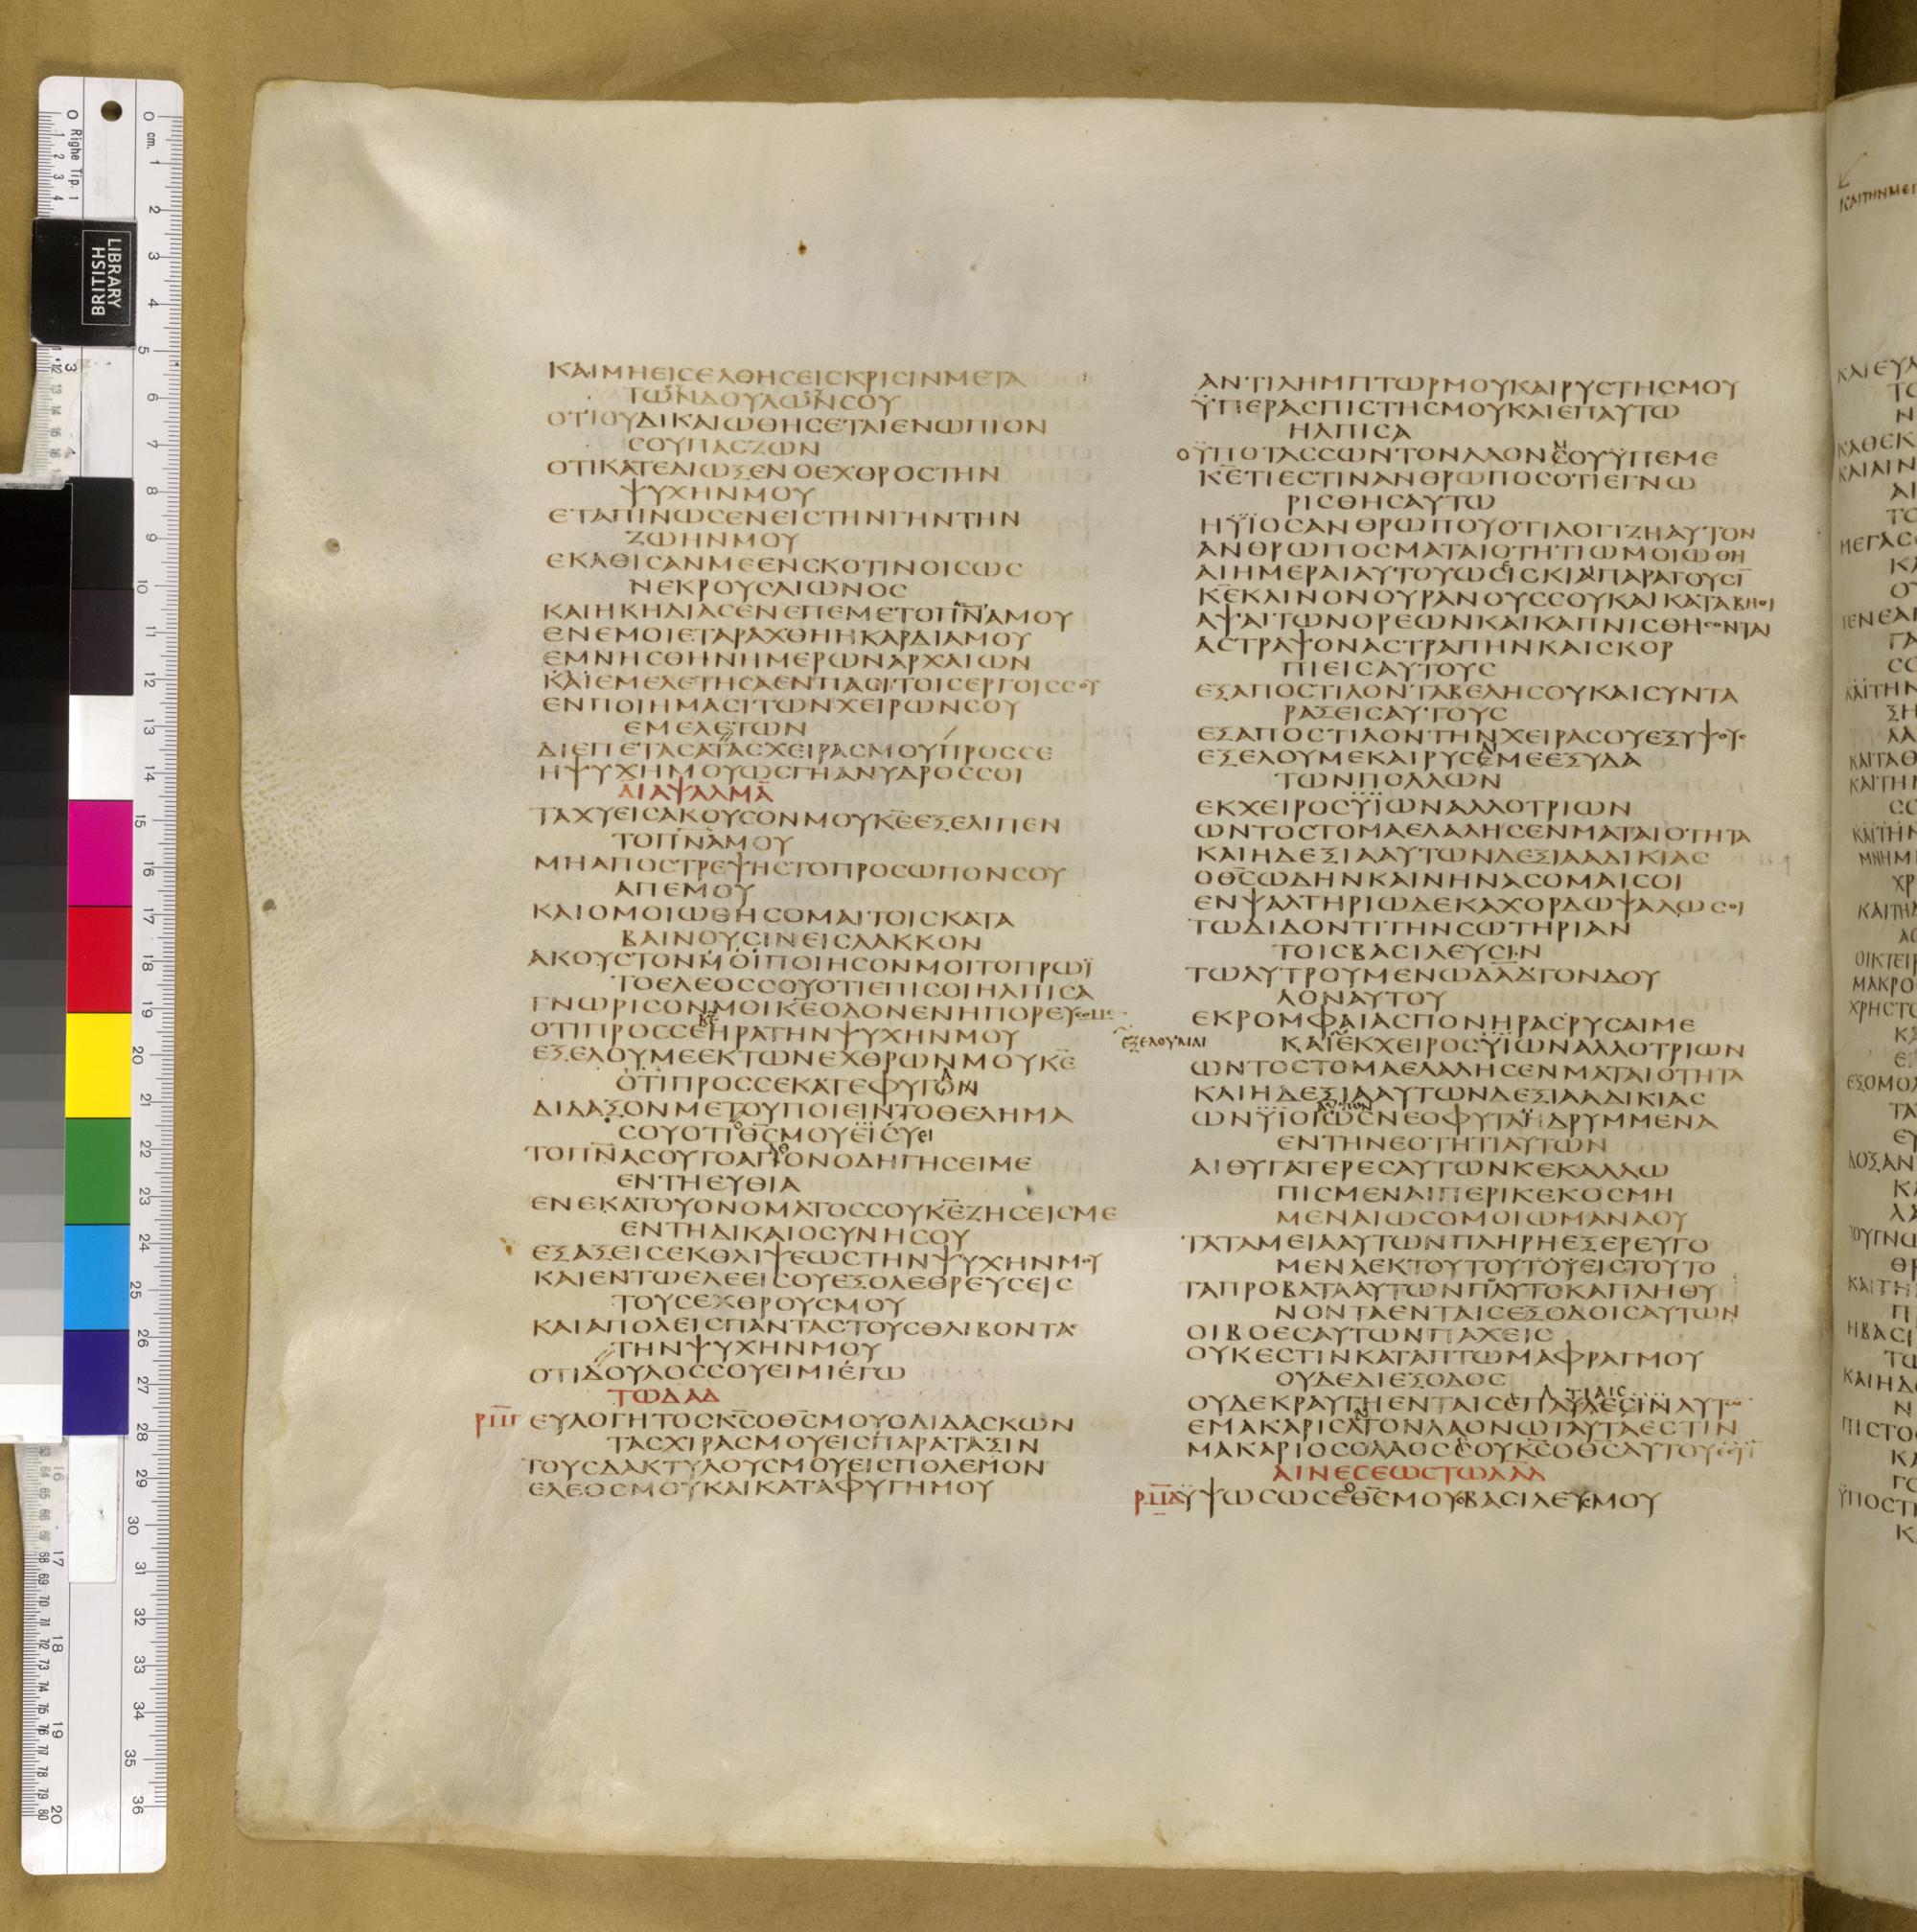 ΚΑΙΜΗΕΙϹΕΛΘΗϹΕΙϹΚΡΙϹΙΝΜΕΤΑ
ΤΩΝΔΟΥΛΩΝϹΟΥ
ΟΤΙΟΥΔΙΚΑΙΩΘΗϹΕΤΑΙΕΝΩΠΙΟΝ
ϹΟΥΠΑϹΖΩΝ
ΟΤΙΚΑΤΕΔΙΩΞΕΝΟΕΧΘΡΟϹΤΗΝ
ΨΥΧΗΝΜΟΥ
ΕΤΑΠΙΝΩϹΕΝΕΙϹΤΗΝΓΗΝΤΗΝ
ΖΩΗΝΜΟΥ
ΕΚΑΘΙϹΑΝΜΕΕΝϹΚΟΤΙΝΟΙϹΩϹ
ΝΕΚΡΟΥϹΑΙΩΝΟϹ
ΚΑΙΗΚΗΔΙΑϹΕΝΕΠΕΜΕΤΟΠΝΑΜΟΥ
ΕΝΕΜΟΙΕΤΑΡΑΧΘΗΗΚΑΡΔΙΑΜΟΥ
ΕΜΝΗϹΘΗΝΗΜΕΡΩΝΑΡΧΑΙΩΝ
ΚΑΙΕΜΕΛΕΤΗϹΑΕΝΠΑϹΙΤΟΙϹΕΡΓΟΙϹϹΟΥ
ΕΝΠΟΙΗΜΑϹΙΤΩΝΧΕΙΡΩΝϹΟΥ
ΕΜΕΛΕΤΩΝ
ΔΙΕΠΕΤΑϹΑΤΑϹΧΕΙΡΑϹΜΟΥΠΡΟϹϹΕ
ΗΨΥΧΗΜΟΥΩϹΓΗΑΝΥΔΡΟϹϹΟΙ
ΔΙΑΨΑΛΜΑ
ΤΑΧΥΕΙϹΑΚΟΥϹΟΝΜΟΥΚΕΕΞΕΛΙΠΕΝ
ΤΟΠΝΑΜΟΥ
ΜΗΑΠΟϹΤΡΕΨΗϹΤΟΠΡΟϹΩΠΟΝϹΟΥ
ΑΠΕΜΟΥ
ΚΑΙΟΜΟΙΩΘΗϹΟΜΑΙΤΟΙϹΚΑΤΑ
ΒΑΙΝΟΥϹΙΝΕΙϹΛΑΚΚΟΝ
ΑΚΟΥϹΤΟΝΜΟΙΠΟΙΗϹΟΝΜΟΙΤΟΠΡΩΪ
ΤΟΕΛΕΟϹϹΟΥΟΤΙΕΠΙϹΟΙΗΛΠΙϹΑ
ΓΝΩΡΙϹΟΝΜΟΙΚΕΟΔΟΝΕΝΗΠΟΡΕΥϹΟΜΕ
ΟΤΙΠΡΟϹϹΕΗΡΑΤΗΝΨΥΧΗΝΜΟΥ
ΕΞΕΛΟΥΜΕΕΚΤΩΝΕΧΘΡΩΝΜΟΥΚΕ
ΟΤΙΠΡΟϹϹΕΚΑΤΕΦΥΓΟΝ
ΔΙΔΑΞΟΝΜΕΤΟΥΠΟΙΕΙΝΤΟΘΕΛΗΜΑ
ϹΟΥΟΤΙΘϹΜΟΥΕΙϹΥ
ΤΟΠΝΑϹΟΥΤΟΑΓΙΟΝΟΔΗΓΗϹΕΙΜΕ
ΕΝΤΗΕΥΘΙΑ
ΕΝΕΚΑΤΟΥΟΝΟΜΑΤΟϹϹΟΥΚΕΖΗϹΕΙϹΜΕ
ΕΝΤΗΔΙΚΑΙΟϹΥΝΗϹΟΥ
ΕΞΑΞΕΙϹΕΚΘΛΙΨΕΩϹΤΗΝΨΥΧΗΝΜΟΥ
ΚΑΙΕΝΤΩΕΛΕΕΙϹΟΥΕΞΟΛΕΘΡΕΥϹΕΙϹ
ΤΟΥϹΕΧΘΡΟΥϹΜΟΥ
ΚΑΙΑΠΟΛΕΙϹΠΑΝΤΑϹΤΟΥϹΘΛΙΒΟΝΤΑϹ
ΤΗΝΨΥΧΗΝΜΟΥ
ΟΤΙΔΟΥΛΟϹϹΟΥΕΙΜΙΕΓΩ
ΤΩΔΑΔ
ΡΜΓ ΕΥΛΟΓΗΤΟϹΚϹΟΘϹΜΟΥΟΔΙΔΑϹΚΩΝ
ΤΑϹΧΙΡΑϹΜΟΥΕΙϹΠΑΡΑΤΑΞΙΝ
ΤΟΥϹΔΑΚΤΥΛΟΥϹΜΟΥΕΙϹΠΟΛΕΜΟΝ
ΕΛΕΟϹΜΟΥΚΑΙΚΑΤΑΦΥΓΗΜΟΥ
ΑΝΤΙΛΗΜΠΤΩΡΜΟΥΚΑΙΡΥϹΤΗϹΜΟΥ
ΫΠΕΡΑϹΠΙϹΤΗϹΜΟΥΚΑΙΕΠΑΥΤΩ
ΗΛΠΙϹΑ
ΟΫΠΟΤΑϹϹΩΝΤΟΝΛΑΟΝϹΟΥΫΠΕΜΕ
ΚΕΤΙΕϹΤΙΝΑΝΘΡΩΠΟϹΟΤΙΕΓΝΩ
ΡΙϹΘΗϹΑΥΤΩ
ΗΫΙΟϹΑΝΘΡΩΠΟΥΟΤΙΛΟΓΙΖΗΑΥΤΟΝ
ΑΝΘΡΩΠΟϹΜΑΤΑΙΟΤΗΤΙΩΜΟΙΩΘΗ
ΑΙΗΜΕΡΑΙΑΥΤΟΥΩϹΙϹΚΙΑΙΠΑΡΑΓΟΥϹΙ
ΚΕΚΛΙΝΟΝΟΥΡΑΝΟΥϹϹΟΥΚΑΙΚΑΤΑΒΗΘΙ
ΑΨΑΙΤΩΝΟΡΕΩΝΚΑΙΚΑΠΝΙϹΘΗϹΟΝΤΑΙ
ΑϹΤΡΑΨΟΝΑϹΤΡΑΠΗΝΚΑΙϹΚΟΡ
ΠΙΕΙϹΑΥΤΟΥϹ
ΕΞΑΠΟϹΤΙΛΟΝΤΑΒΕΛΗϹΟΥΚΑΙϹΥΝΤΑ
ΡΑΞΕΙϹΑΥΤΟΥϹ
ΕΞΑΠΟϹΤΙΛΟΝΤΗΝΧΕΙΡΑϹΟΥΕΞΥΨΟΥϹ
ΕΞΕΛΟΥΜΕΚΑΙΡΥϹΕΜΕΕΞΥΔΑ
ΤΩΝΠΟΛΛΩΝ
ΕΚΧΕΙΡΟϹΫΪΩΝΑΛΛΟΤΡΙΩΝ
ΩΝΤΟϹΤΟΜΑΕΛΑΛΗϹΕΝΜΑΤΑΙΟΤΗΤΑ
ΚΑΙΗΔΕΞΙΑΑΥΤΩΝΔΕΞΙΑΑΔΙΚΙΑϹ
ΟΘϹΩΔΗΝΚΑΙΝΗΝΑϹΟΜΑΙϹΟΙ
ΕΝΨΑΛΤΗΡΙΩΔΕΚΑΧΟΡΔΩΨΑΛΩϹΟΙ
ΤΩΔΙΔΟΝΤΙΤΗΝϹΩΤΗΡΙΑΝ
ΤΟΙϹΒΑϹΙΛΕΥϹΙΝ
ΤΩΛΥΤΡΟΥΜΕΝΩΔΑΔΤΟΝΔΟΥ
ΛΟΝΑΥΤΟΥ
ΕΚΡΟΜΦΑΙΑϹΠΟΝΗΡΑϹΡΥϹΑΙΜΕ
ΕΞΕΛΟΥΜΑΙ ΚΑΙΕΚΧΕΙΡΟϹΫΪΩΝΑΛΛΟΤΡΙΩΝ
ΩΝΤΟϹΤΟΜΑΕΛΑΛΗϹΕΝΜΑΤΑΙΟΤΗΤΑ
ΚΑΙΗΔΕΞΙΑΑΥΤΩΝΔΕΞΙΑΑΔΙΚΙΑϹ
ΩΝΫΪΟΙΩϹΝΕΟΦΥΤΑΪΔΡΥΜΜΕΝΑ
ΕΝΤΗΝΕΟΤΗΤΙΑΥΤΩΝ
ΑΙΘΥΓΑΤΕΡΕϹΑΥΤΩΝΚΕΚΑΛΛΩ
ΠΙϹΜΕΝΑΙΠΕΡΙΚΕΚΟϹΜΗ
ΜΕΝΑΙΩϹΟΜΟΙΩΜΑΝΑΟΥ
ΤΑΤΑΜΕΙΑΑΥΤΩΝΠΛΗΡΗΕΞΕΡΕΥΓΟ
ΜΕΝΑΕΚΤΟΥΤΟΥΤΟΥΕΙϹΤΟΥΤΟ
ΤΑΠΡΟΒΑΤΑΑΥΤΩΝΠΛΥΤΟΚΑΠΛΗΘΥ
ΝΟΝΤΑΕΝΤΑΙϹΕΞΟΔΟΙϹΑΥΤΩΝ
ΟΙΒΟΕϹΑΥΤΩΝΠΑΧΕΙϹ
ΟΥΚΕϹΤΙΝΚΑΤΑΠΤΩΜΑΦΡΑΓΜΟΥ
ΟΥΔΕΔΙΕΞΟΔΟϹ
ΟΥΔΕΚΡΑΥΓΗΕΝΤΑΙϹΕΠΑΥΛΕϹΙΝΑΥΤΩΝ
ΕΜΑΚΑΡΙϹΑΤΟΝΛΑΟΝΩΤΑΥΤΑΕϹΤΙΝ
ΜΑΚΑΡΙΟϹΟΛΑΟϹϹΟΥΚϹΟΘϹΑΥΤΟΥ
ΑΙΝΕϹΕΩϹΤΩΔΑΔ
ΡΜΔ ΫΨΩϹΩϹΕΘϹΜΟΥΟΒΑϹΙΛΕΥϹΜΟΥ
LIBRARY
BRITISH
Righe Tip.
cm.